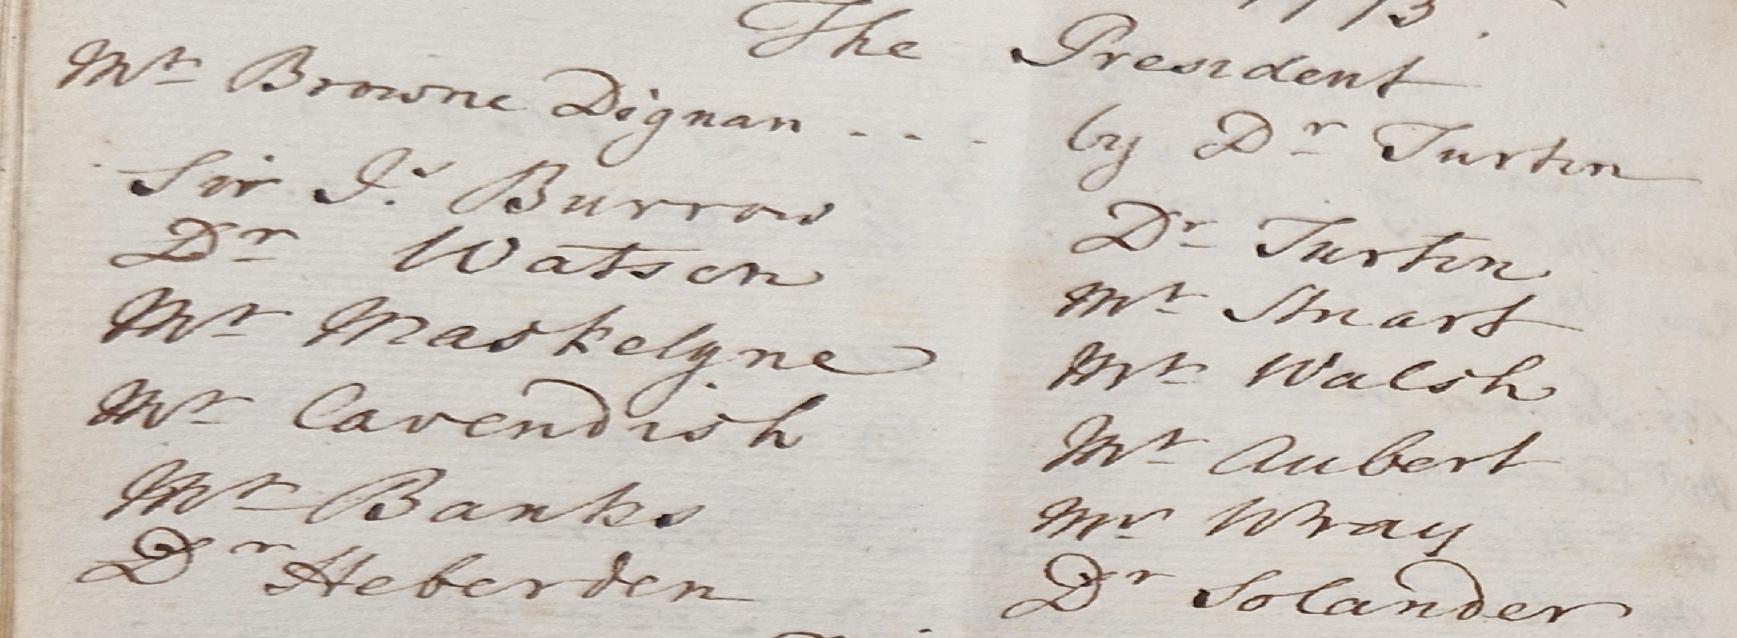 1773.
The President
Mr Browne Dignan - - - by Dr Turton
Sir Js. Burrow
Dr Watson
Mr Maskelyne
Mr Cavendish
Mr Banks
Dr Heberden
Dr Turton
Mr Stuart
Mr Walsh
Mr Aubert
Mr Wray
Dr Solander